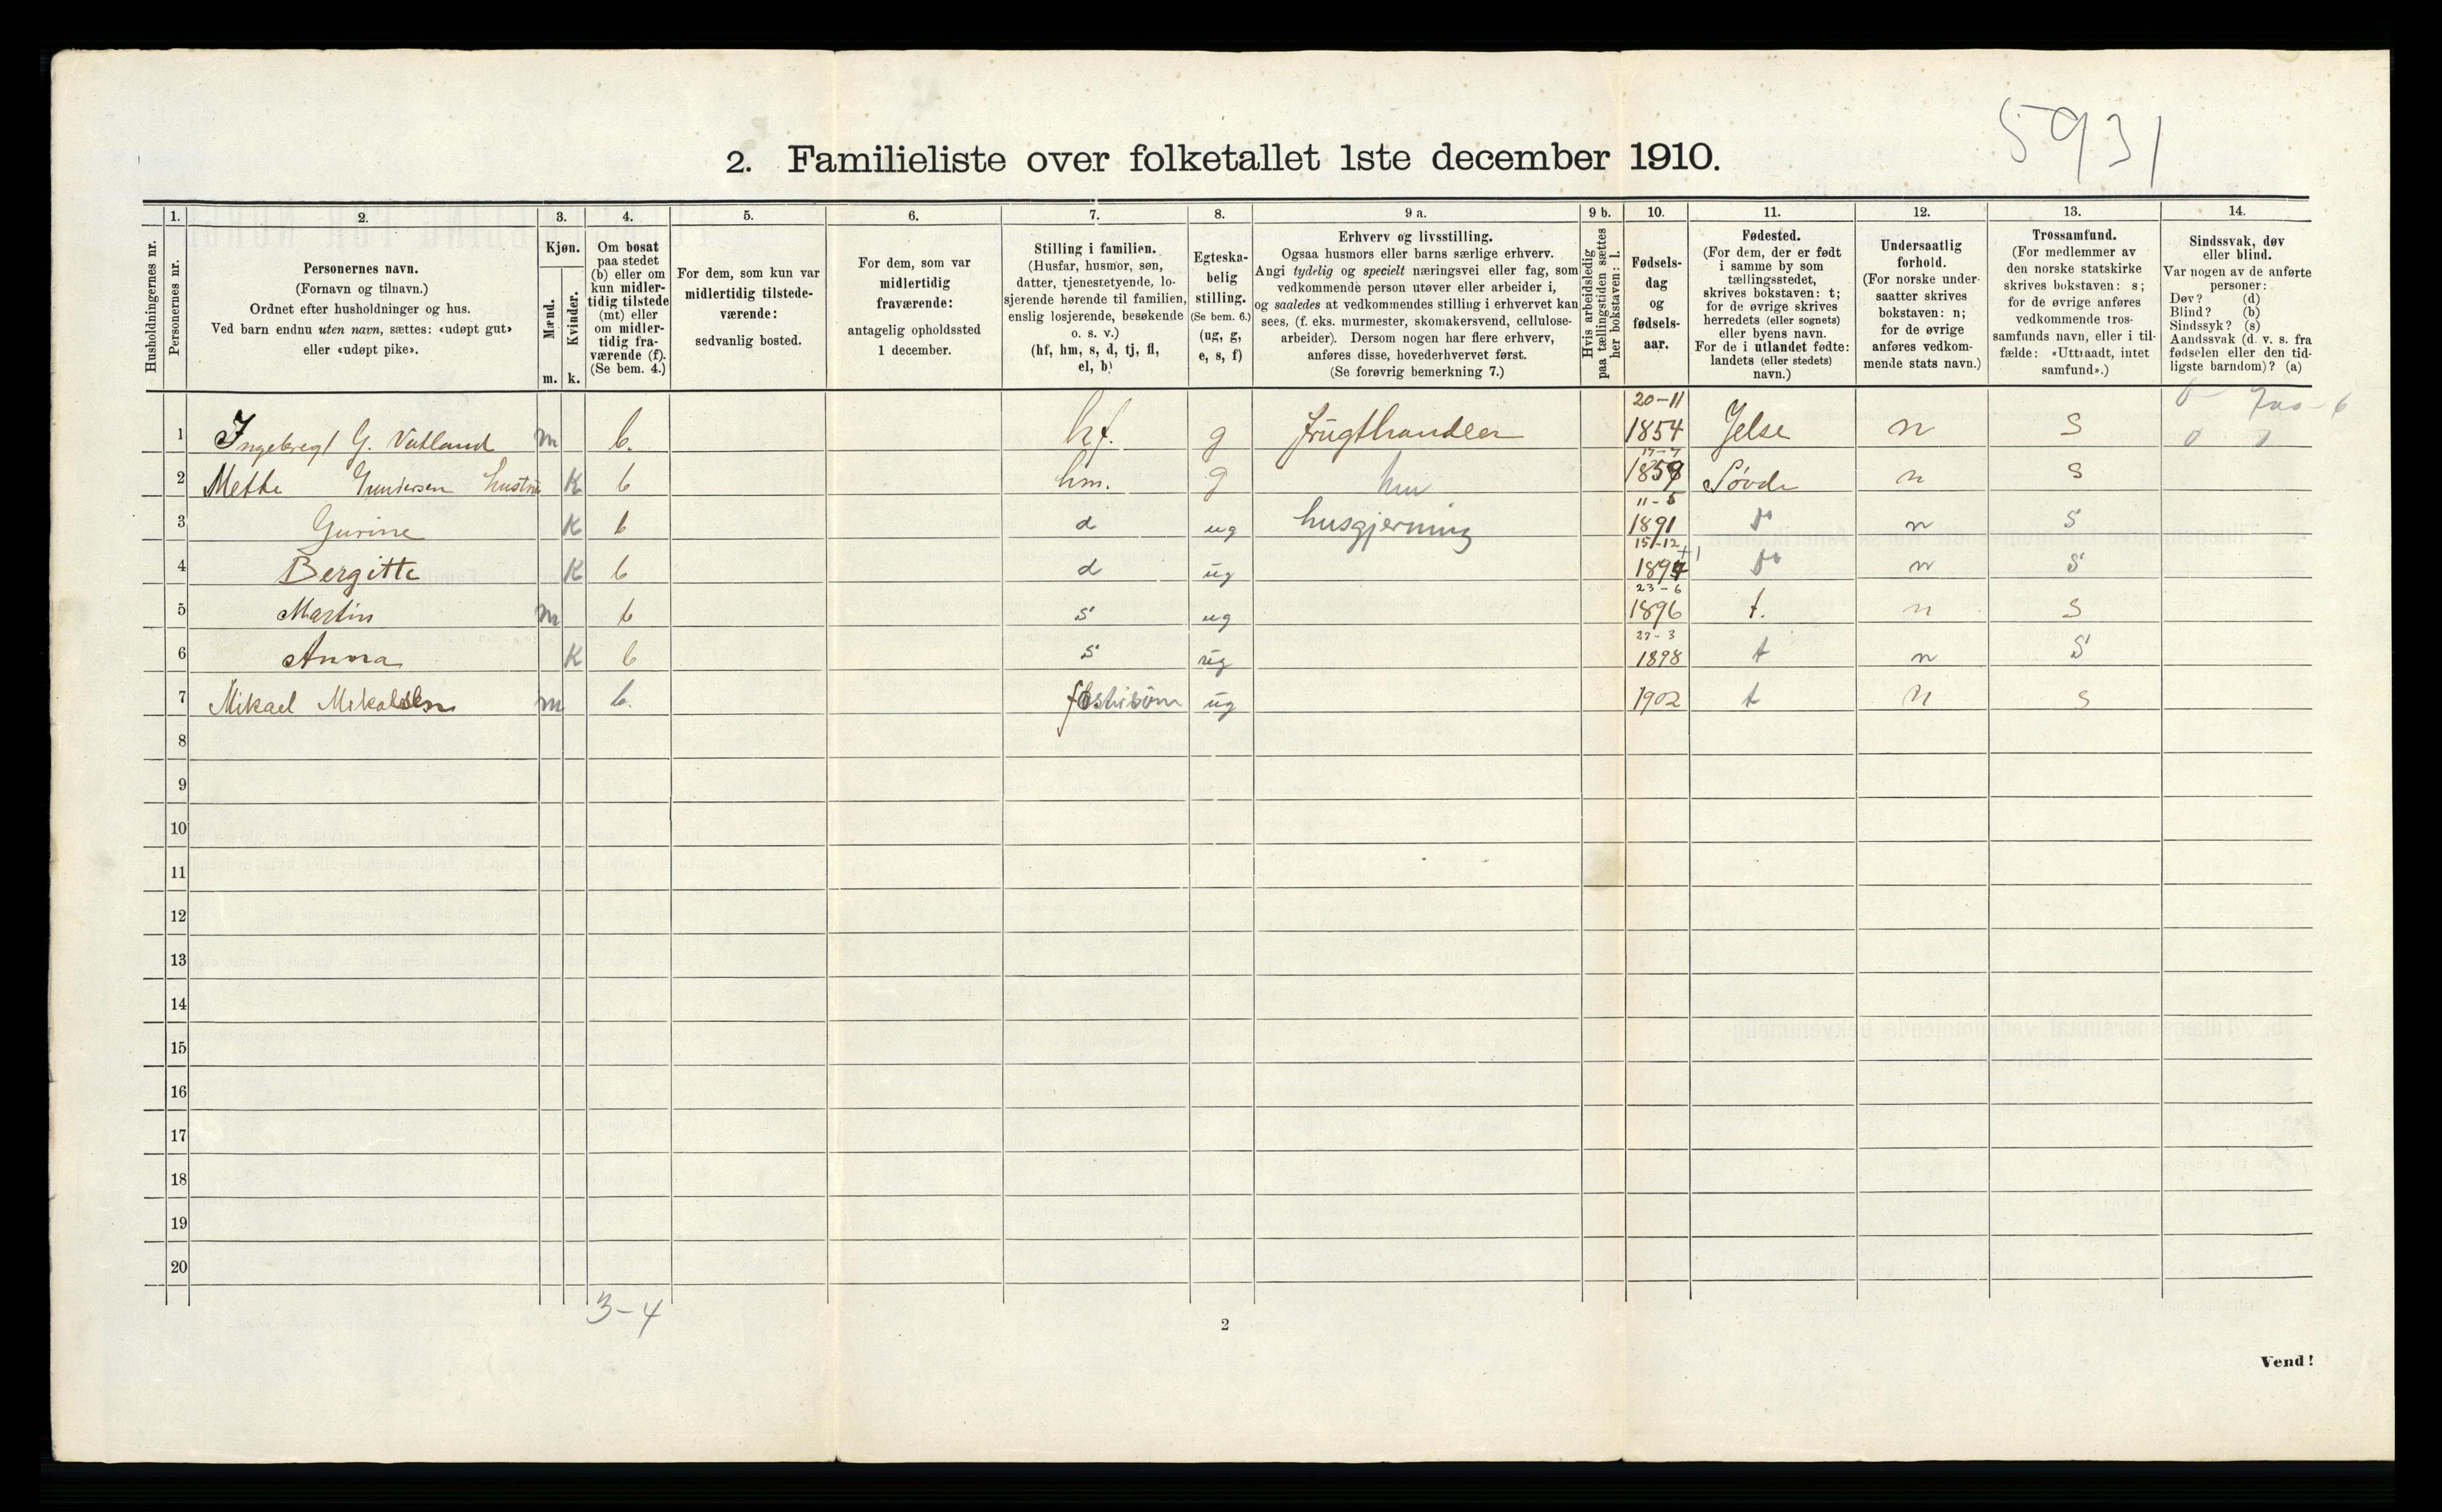 5931
2. Familieliste over folketallet 1ste december 1910.
Husholdningernes nr.
1. Personernes nr.
2. Personernes navn. (Fornavn og tilnavn.) Ordnet efter husholdninger og hus. Ved barn endnu uten navn, sættes: «udøpt gut» eller «udøpt pike».
3. Kjøn. Mænd. m. Kvinder. k.
4. Om bosat paa stedet (b) eller om kun midlertidig tilstede (mt) eller om midlertidig fraværende (f). (Se bem. 4.)
5. For dem, som kun var midlertidig tilstedeværende: sedvanlig bosted.
6. For dem, som var midlertidig fraværende: antagelig opholdssted 1 december.
7. Stilling i familien. (Husfar, husmor, søn, datter, tjenestetyende, losjerende hørende til familien, enslig losjerende, besøkende o. s. v.) (hf, hm, s, d, tj, fl, el, b)
8. Egteskabelig stilling. (Se bem. 6.) (ug, g, e, s, f)
9 a. Erhverv og livsstilling. Ogsaa husmors eller barns særlige erhverv. Angi tydelig og specielt næringsvei eller fag, som vedkommende person utøver eller arbeider i, og saaledes at vedkommendes stilling i erhvervet kan sees, (f. eks. murmester, skomakersvend, cellulosearbeider). Dersom nogen har flere erhverv, anføres disse, hovederhvervet først. (Se forøvrig bemerkning 7.)
9 b. Hvis arbeidsledig paa tællingstiden sættes her bokstaven: l.
10. Fødselsdag og fødselsaar.
11. Fødested. (For dem, der er født i samme by som tællingsstedet, skrives bokstaven: t; for de øvrige skrives herredets (eller sognets) eller byens navn. For de i utlandet fødte: landets (eller stedets) navn.)
12. Undersaatlig forhold. (For norske undersaatter skrives bokstaven: n; for de øvrige anføres vedkommende stats navn.)
13. Trossamfund. (For medlemmer av den norske statskirke skrives bokstaven: s; for de øvrige anføres vedkommende trossamfunds navn, eller i tilfælde: «Uttraadt, intet samfund».)
14. Sindssvak, døv eller blind. Var nogen av de anførte personer: Døv? (d) Blind? (b) Sindssyk? (s) Aandssvak (d. v. s. fra fødselen eller den tidligste barndom)? (a)
1 Ingebregt G. Vatland m b. hf. g frugthandler 20-11 1854 Jelse n s
2 Mette Gundersen hustru K b hm. g hm 1859 Søvde n s
3 Gurine K b d ug husgjerning 11-5 1891 n s
4 Bergitte K b d ug 15-12 1894 n s
5 Martin m b s ug 23-6 1896 t. n s
6 Anna K b s ug 27-3 1898 t n s
7 Mikael Mikalsen m b. ug 1902 t n s
8
9
10
11
12
13
14
15
16
17
18
19
20
3-4
2
Vend!